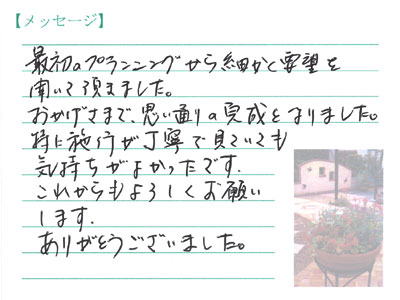 【メッセージ】
最初のプランニングから細かと要望を
聞いて頂きました。
おかげさまで、思い通りの完成となりました。
特に施行が丁寧で見ていても
気持ちがよかったです。
これからもよろしくお願い
します。
ありがとうございました。